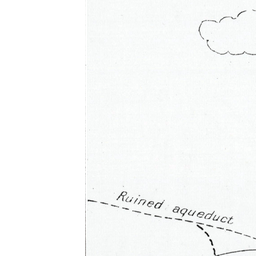 Ruined aqueduct